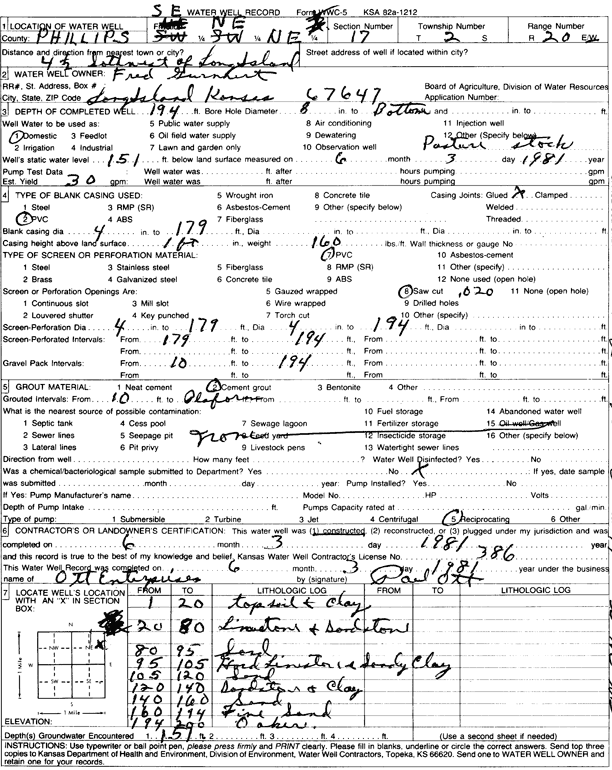 SE WATER WELL RECORD Form WWC-5 KSA 82a-1212
1 LOCATION OF WATER WELL Fraction NE Section Number Township Number Range Number
County: PHILLIPS SW ¼ SW ¼ NE ¼ 17 T 2 S R 20 EW
Distance and direction from nearest town or city? Street address of well if located within city?
4½ Southwest of Long Island
2 WATER WELL OWNER: Fred
RR#, St. Address, Box # Board of Agriculture, Division of Water Resources
City, State, ZIP Code Long Island Kansas 67647 Application Number:
3 DEPTH OF COMPLETED WELL 194 ft. Bore Hole Diameter 8 in. to Bottom ft., and in. to ft.
Well Water to be used as: 5 Public water supply 8 Air conditioning 11 Injection well
1 Domestic 3 Feedlot 6 Oil field water supply 9 Dewatering 12 Other (Specify below)
2 Irrigation 4 Industrial 7 Lawn and garden only 10 Observation well Pasture stock
Well's static water level 151 ft. below land surface measured on 6 month 3 day 1981 year
Pump Test Data : Well water was ft. after hours pumping gpm
Est. Yield 30 gpm: Well water was ft. after hours pumping gpm
4 TYPE OF BLANK CASING USED: 5 Wrought iron 8 Concrete tile Casing Joints: Glued X Clamped
1 Steel 3 RMP (SR) 6 Asbestos-Cement 9 Other (specify below) Welded
2 PVC 4 ABS 7 Fiberglass Threaded
Blank casing dia 4 in. to 179 ft., Dia in. to ft., Dia in. to ft.
Casing height above land surface in., weight 160 lbs./ft. Wall thickness or gauge No
TYPE OF SCREEN OR PERFORATION MATERIAL: 7 PVC 10 Asbestos-cement
1 Steel 3 Stainless steel 5 Fiberglass 8 RMP (SR) 11 Other (specify)
2 Brass 4 Galvanized steel 6 Concrete tile 9 ABS 12 None used (open hole)
Screen or Perforation Openings Are: 5 Gauzed wrapped 8 Saw cut .020 11 None (open hole)
1 Continuous slot 3 Mill slot 6 Wire wrapped 9 Drilled holes
2 Louvered shutter 4 Key punched 7 Torch cut 10 Other (specify)
Screen-Perforation Dia 4 in. to 179 ft., Dia 4 in. to 194 ft., Dia in. to ft.
Screen-Perforated Intervals: From 179 ft. to 194 ft., From ft. to ft.
From ft. to ft., From ft. to ft.
Gravel Pack Intervals: From 10 ft. to 194 ft., From ft. to ft.
From ft. to ft., From ft. to ft.
5 GROUT MATERIAL: 1 Neat cement 2 Cement grout 3 Bentonite 4 Other
Grouted Intervals: From 10 ft. to ft., From ft. to ft., From ft. to ft.
What is the nearest source of possible contamination: 10 Fuel storage 14 Abandoned water well
1 Septic tank 4 Cess pool 7 Sewage lagoon 11 Fertilizer storage 15 Oil well/Gas well
2 Sewer lines 5 Seepage pit None 8 Feed yard 12 Insecticide storage 16 Other (specify below)
3 Lateral lines 6 Pit privy 9 Livestock pens 13 Watertight sewer lines
Direction from well How many feet ? Water Well Disinfected? Yes
Was a chemical/bacteriological sample submitted to Department? Yes No X If yes, date sample
was submitted month day year: Pump Installed? Yes No
If Yes: Pump Manufacturer's name Model No. HP Volts
Depth of Pump Intake ft. Pumps Capacity rated at gal./min.
Type of pump: 1 Submersible 2 Turbine 3 Jet 4 Centrifugal 5 Reciprocating 6 Other
6 CONTRACTOR'S OR LANDOWNER'S CERTIFICATION: This water well was (1) constructed, (2) reconstructed, or (3) plugged under my jurisdiction and was
completed on 6 month 3 day 1981 year
and this record is true to the best of my knowledge and belief. Kansas Water Well Contractor's License No. 386
This Water Well Record was completed on 6 month 3 day 1981 year under the business
name of Ott Enterprises by (signature) Paul Ott
7 LOCATE WELL'S LOCATION WITH AN "X" IN SECTION BOX: FROM TO LITHOLOGIC LOG FROM TO LITHOLOGIC LOG
1 20 top soil & Clay
N
20 80 Limestone & Sandstone
NW NE X
80 95 Sand
W E
95 105 Hard Limestone & Sandy Clay
105 120 Sand
SW SE
120 140 Sandstone & Clay
S
140 160 Sand
1 Mile
160 194 Fine Sand
ELEVATION: 194 200 Oaker
Depth(s) Groundwater Encountered 1 151 ft. 2 ft. 3 ft. 4 ft. (Use a second sheet if needed)
INSTRUCTIONS: Use typewriter or ball point pen, please press firmly and PRINT clearly. Please fill in blanks, underline or circle the correct answers. Send top three
copies to Kansas Department of Health and Environment, Division of Environment, Water Well Contractors, Topeka, KS 66620. Send one to WATER WELL OWNER and
retain one for your records.